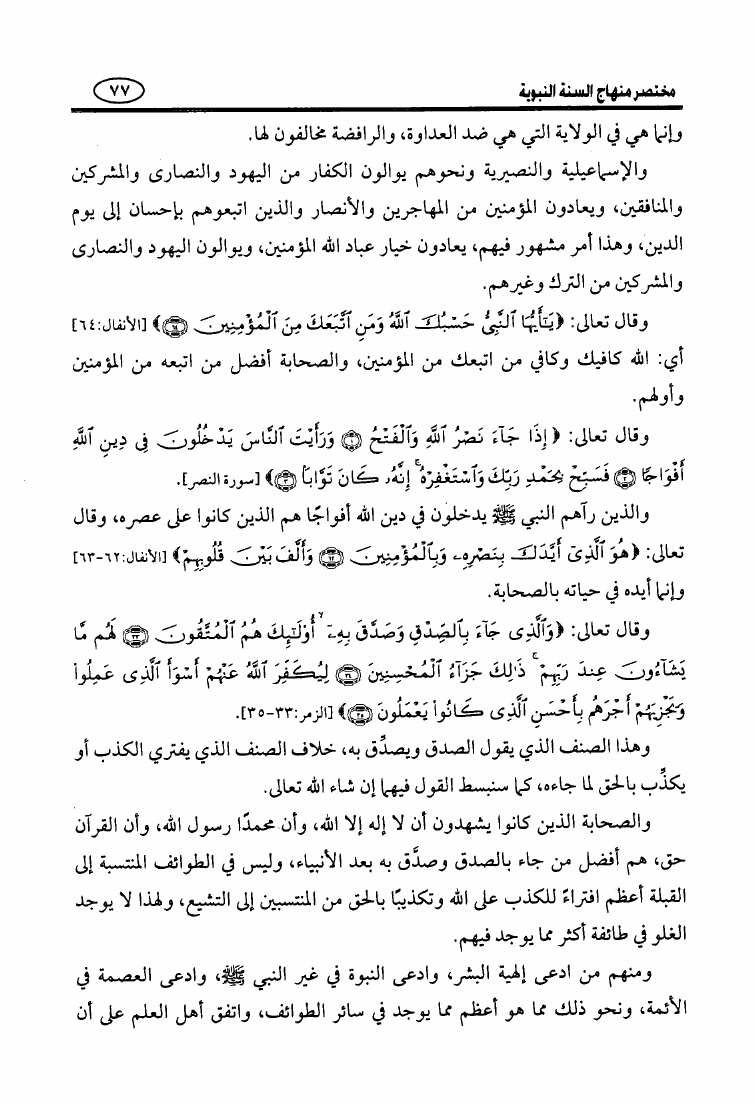 مختصر منهاج السنة النبوية ٧٧
وإنما هي في الولاية التي هي ضد العداوة، والرافضة مخالفون لها.
والإسماعيلية والنصيرية ونحوهم يوالون الكفار من اليهود والنصارى والمشركين
والمنافقين، ويعادون المؤمنين من المهاجرين والأنصار والذين اتبعوهم بإحسان إلى يوم
الدين، وهذا أمر مشهور فيهم، يعادون خيار عباد الله المؤمنين، ويوالون اليهود والنصارى
والمشركين من الترك وغيرهم.
وقال تعالى: ﴿يَٰٓأَيُّهَا ٱلنَّبِىُّ حَسْبُكَ ٱللَّهُ وَمَنِ ٱتَّبَعَكَ مِنَ ٱلْمُؤْمِنِينَ ۝٦٤﴾ [الأنفال:٦٤]
أي: الله كافيك وكافي من اتبعك من المؤمنين، والصحابة أفضل من اتبعه من المؤمنين
وأولهم.
وقال تعالى: ﴿إِذَا جَآءَ نَصْرُ ٱللَّهِ وَٱلْفَتْحُ ۝١ وَرَأَيْتَ ٱلنَّاسَ يَدْخُلُونَ فِى دِينِ ٱللَّهِ
أَفْوَاجًا ۝٢ فَسَبِّحْ بِحَمْدِ رَبِّكَ وَٱسْتَغْفِرْهُ ۚ إِنَّهُۥ كَانَ تَوَّابًا ۝٣﴾ [سورة النصر].
والذين رآهم النبي ﷺ يدخلون في دين الله أفواجًا هم الذين كانوا على عصره، وقال
تعالى: ﴿هُوَ ٱلَّذِىٓ أَيَّدَكَ بِنَصْرِهِۦ وَبِٱلْمُؤْمِنِينَ ۝٦٢ وَأَلَّفَ بَيْنَ قُلُوبِهِمْ﴾ [الأنفال:٦٢-٦٣]
وإنما أيده في حياته بالصحابة.
وقال تعالى: ﴿وَٱلَّذِى جَآءَ بِٱلصِّدْقِ وَصَدَّقَ بِهِۦٓ ۙ أُو۟لَٰٓئِكَ هُمُ ٱلْمُتَّقُونَ ۝٣٣ لَهُم مَّا
يَشَآءُونَ عِندَ رَبِّهِمْ ۚ ذَٰلِكَ جَزَآءُ ٱلْمُحْسِنِينَ ۝٣٤ لِيُكَفِّرَ ٱللَّهُ عَنْهُمْ أَسْوَأَ ٱلَّذِى عَمِلُوا۟
وَيَجْزِيَهُمْ أَجْرَهُم بِأَحْسَنِ ٱلَّذِى كَانُوا۟ يَعْمَلُونَ ۝٣٥﴾ [الزمر:٣٣-٣٥].
وهذا الصنف الذي يقول الصدق ويصدِّق به، خلاف الصنف الذي يفتري الكذب أو
يكذِّب بالحق لما جاءه، كما سنبسط القول فيهما إن شاء الله تعالى.
والصحابة الذين كانوا يشهدون أن لا إله إلا الله، وأن محمدًا رسول الله، وأن القرآن
حق، هم أفضل من جاء بالصدق وصدَّق به بعد الأنبياء، وليس في الطوائف المنتسبة إلى
القبلة أعظم افتراءً للكذب على الله وتكذيبًا بالحق من المنتسبين إلى التشيع، ولهذا لا يوجد
الغلو في طائفة أكثر مما يوجد فيهم.
ومنهم من ادعى إلهية البشر، وادعى النبوة في غير النبي ﷺ، وادعى العصمة في
الأئمة، ونحو ذلك مما هو أعظم مما يوجد في سائر الطوائف، واتفق أهل العلم على أن